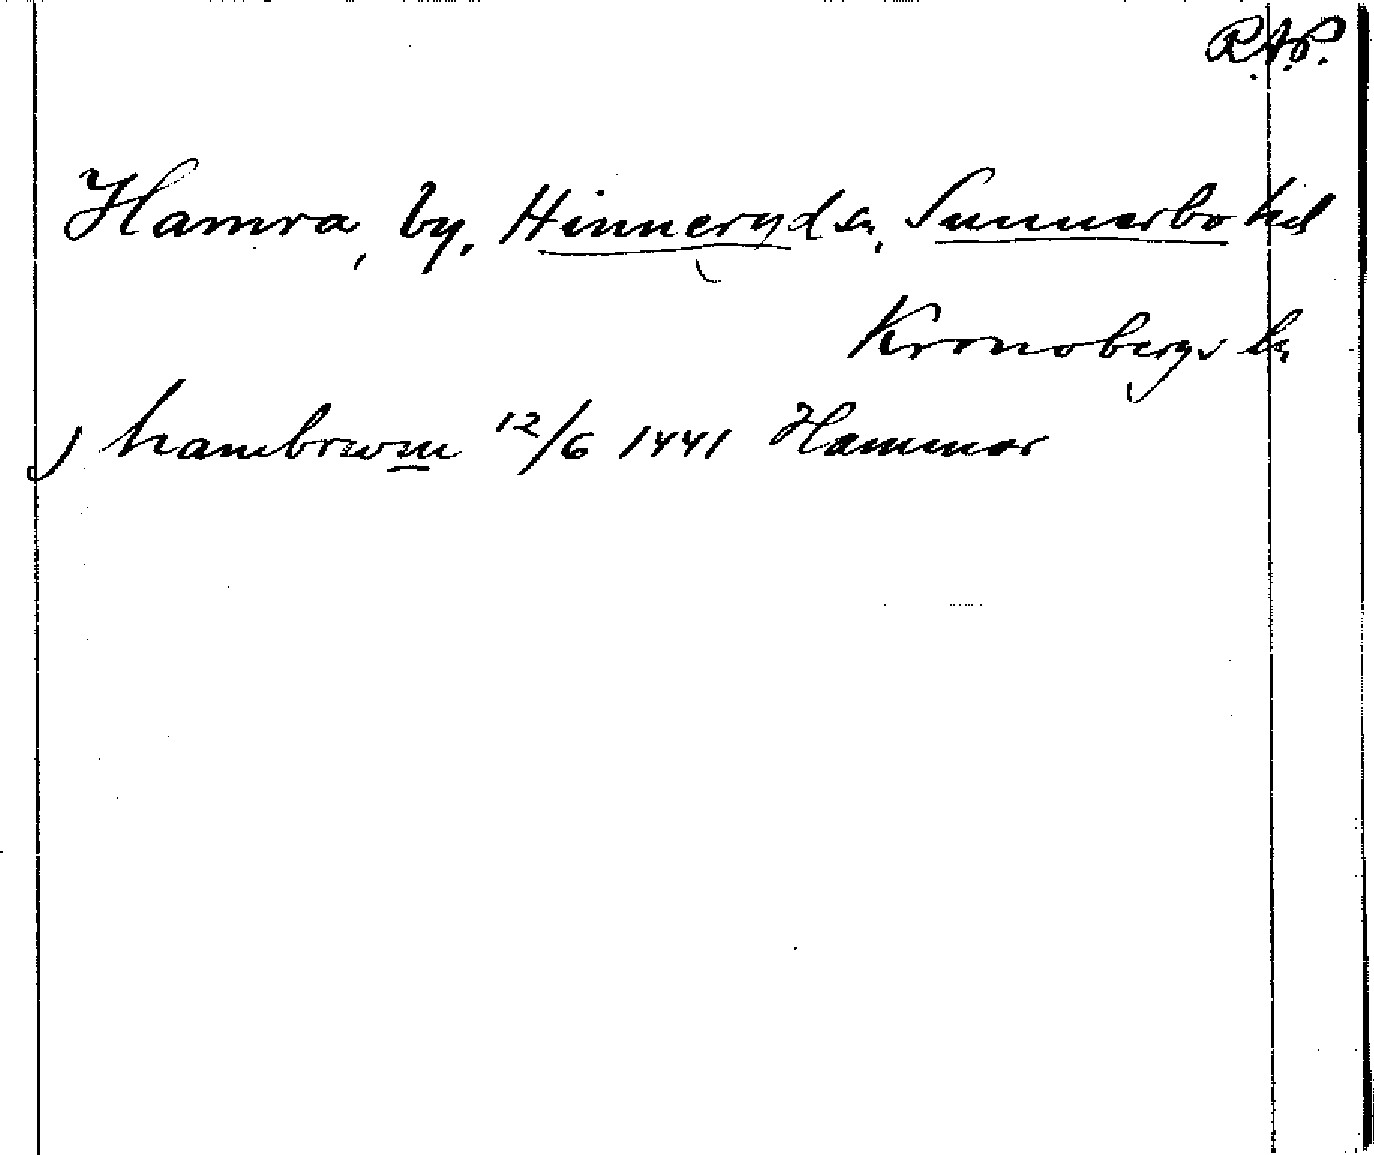 R.A.P.
Hamra, by, Hinneryd sn, Sunnerbo hd
Kronobergs ln
J hambrwm 12/6 1441 Hammar